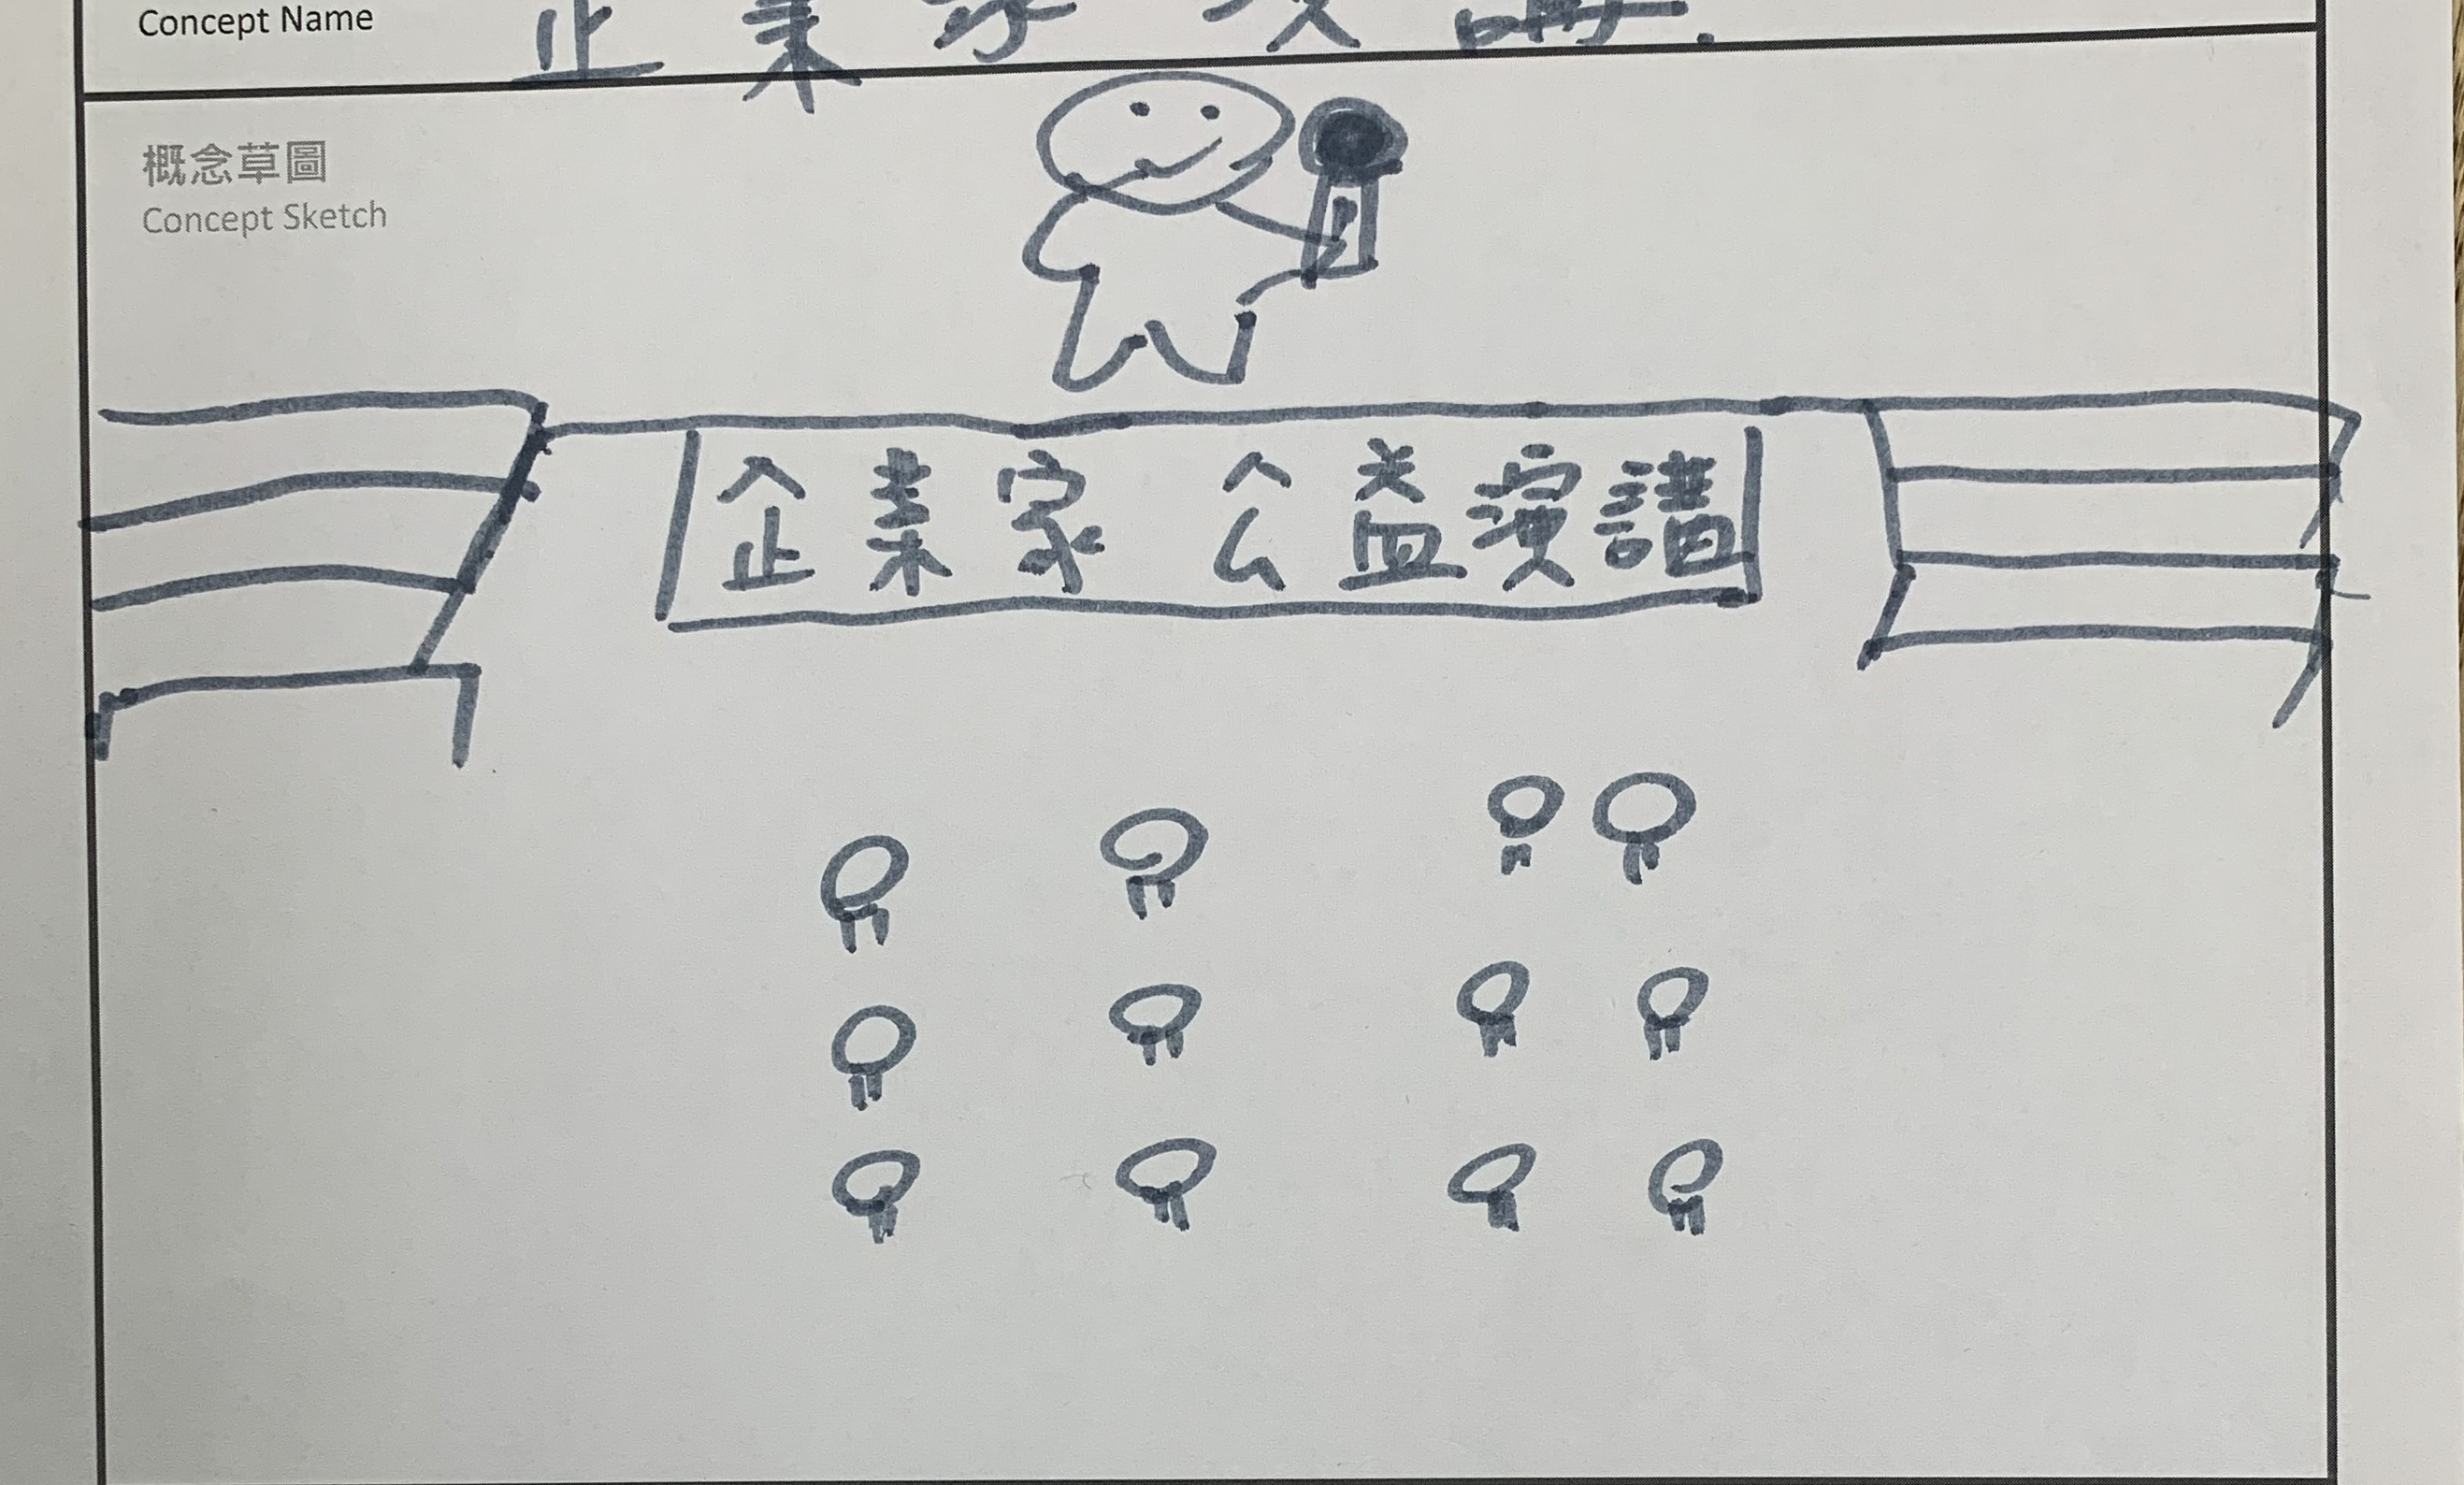 Concept Name
企業家演講.
概念草圖
Concept Sketch
企業家 公益演講